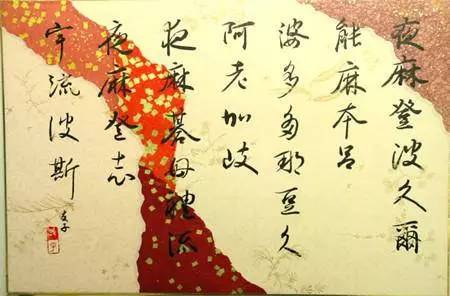 夜麻登波久爾
能麻本呂
婆多多那豆久
阿袁加岐
夜麻碁母禮流
夜麻登志
宇流波斯